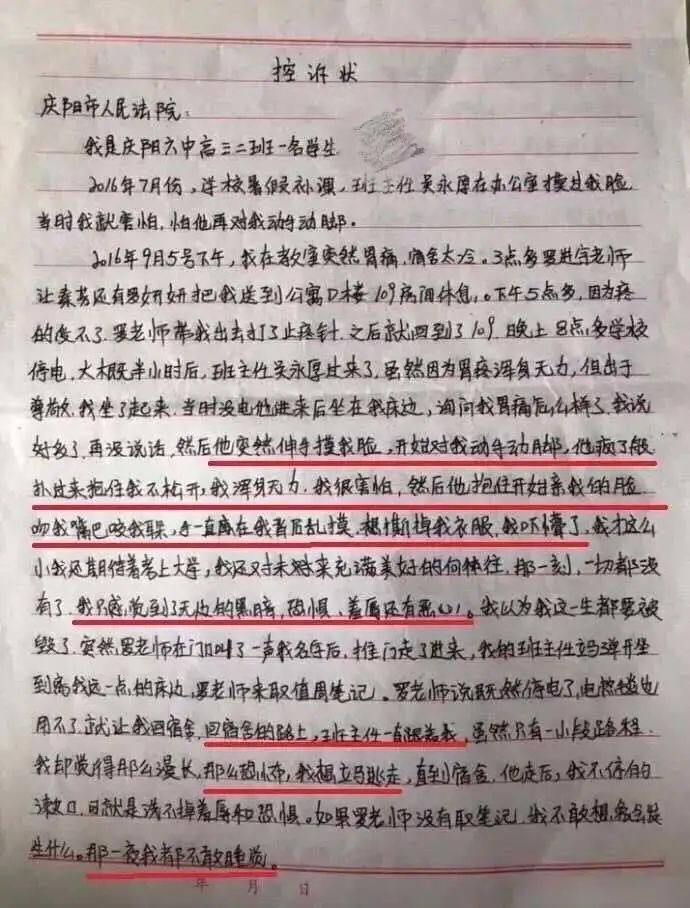 控诉状
庆阳市人民法院:
我是庆阳六中高三二班一名学生
2016年7月份,学校暑假补课,班主任吴永厚在办公室摸过我脸
当时我就害怕,怕他再对我动手动脚。
2016年9月5号下午,我在教室突然胃痛,宿舍太冷。3点多罗进宇老师
让秦芳还有罗妍妍把我送到公寓D楼109房间休息。下午5点多,因为疼
的受不了.罗老师带我出去打了止疼针.之后就回到了109.晚上8点多学校
停电,大概半小时后,班主任吴永厚过来了,虽然因为胃疼浑身无力,但出于
尊敬,我坐了起来,当时没电他进来后坐在我床边,询问我胃痛怎么样了.我说
好多了.再没说话,然后他突然伸手摸我脸,开始对我动手动脚,他疯了般
扑过来抱住我不松开,我浑身无力.我很害怕,然后他抱住开始亲我的脸
吻我嘴巴咬我耳朵,手一直在我背后乱摸,想撕掉我衣服,我吓懵了,我才这么
小我还期待着考上大学,我还对未来充满美好的向往,那一刻,一切都没
有了.我只感觉到了无边的黑暗,恐惧、羞辱还有恶心。我以为我这一生都要被
毁了.突然罗老师在门口叫了一声我名字后,推门走了进来,我的班主任立马弹开坐
到离我远一点的床边,罗老师来取值周笔记。罗老师说既然停电了,电热毯也
用不了.就让我回宿舍,回宿舍的路上,班主任一直跟着我,虽然只有一小段路程.
我却觉得那么漫长,那么恐怖,我想立马逃走,直到宿舍,他走后,我不停的
漱口,可就是洗不掉羞辱和恐惧。如果罗老师没有取笔记,我不敢想我会发
生什么。那一夜我都不敢睡觉。
年 月 日